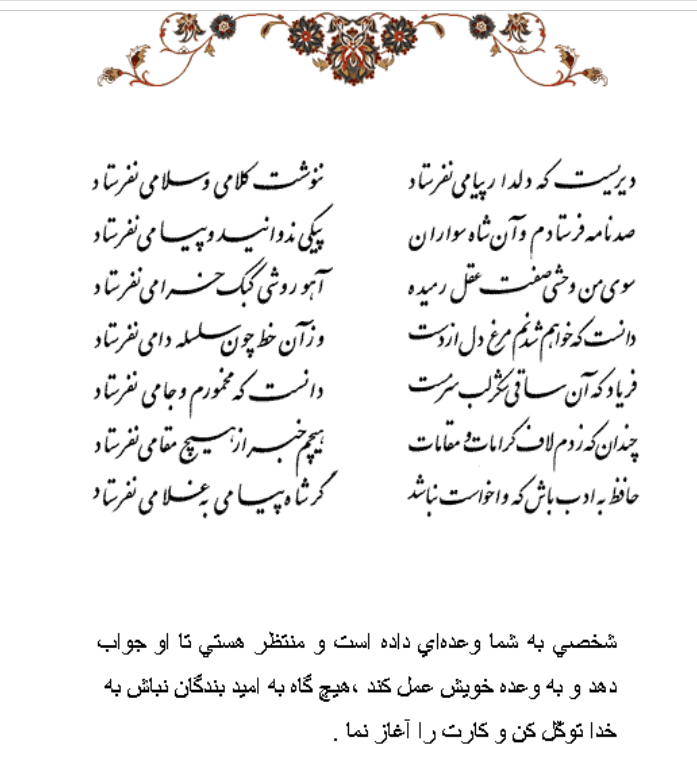 دیریست که دلدار پیامی نفرستاد ننوشت کلامی و سلامی نفرستاد
صد نامه فرستادم و آن شاه سواران پیکی ندوانید و پیامی نفرستاد
سوی من وحشی صفت عقل رمیده آهو روشی کبک خرامی نفرستاد
دانست که خواهم شدنم مرغ دل از دست وز آن خط چون سلسله دامی نفرستاد
فریاد که آن ساقی شکر لب سرمست دانست که مخمورم و جامی نفرستاد
چندان که زدم لاف کرامات و مقامات هیچم خبر از هیچ مقامی نفرستاد
حافظ به ادب باش که واخواست نباشد گر شاه پیامی به غلامی نفرستاد
شخصي به شما وعده‌اي داده است و منتظر هستي تا او جواب
دهد و به وعده خویش عمل کند ،هیچ گاه به امید بندگان نباش به
خدا توکّل کن و کارت را آغاز نما .